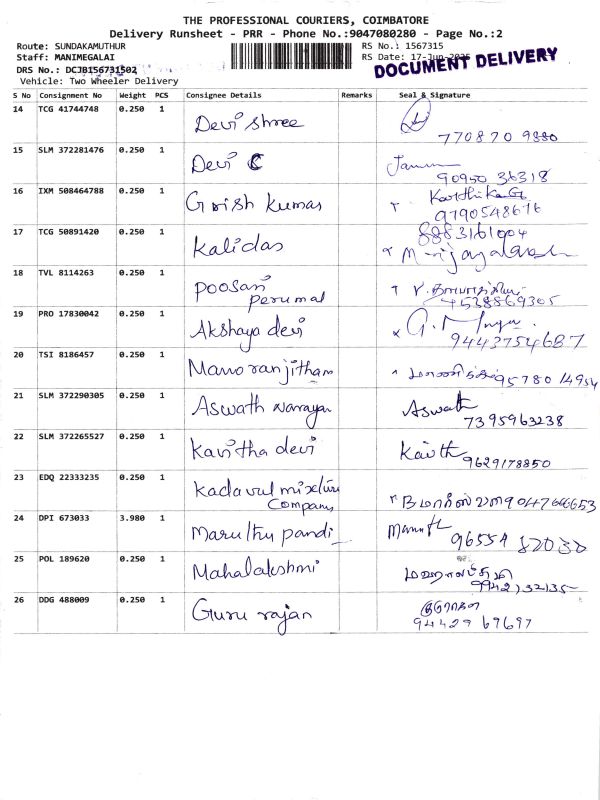 THE PROFESSIONAL COURIERS, COIMBATORE
Delivery Runsheet - PRR - Phone No.:9047080280 - Page No.:2
Route: SUNDAKAMUTHUR
RS No.: 1567315
Staff: MANIMEGALAI
RS Date: 17-Jun-2025
DRS No.: DCJB156731502
DOCUMENT DELIVERY
Vehicle: Two Wheeler Delivery
S No Consignment No Weight PCS Consignee Details Remarks Seal & Signature
14 TCG 41744748 0.250 1 Devi shree
770870 9880
15 SLM 372281476 0.250 1 Devi C
90950 36318
16 IXM 508464788 0.250 1 Girish Kumar Karthika G
9790548676
17 TCG 50891420 0.250 1 Kalidas 8883161004
18 TVL 8114263 0.250 1 Poosari
perumal
9538869305
19 PRO 17830042 0.250 1 Akshaya devi
9443754687
20 TSI 8186457 0.250 1 Mano ranjitham 95780 14954
21 SLM 372290305 0.250 1 Aswath narayan Aswath
7395963238
22 SLM 372265527 0.250 1 Kavitha devi Kavith
9629178850
23 EDQ 22333235 0.250 1 Kadavul mixture
Company
9047666653
24 DPI 673033 3.980 1 Maruthu pandi
96554 82030
25 POL 189620 0.250 1 Mahalakshmi மஹாலட்சுமி
9942132135
26 DDG 488009 0.250 1 Guru rajan
94429 69697